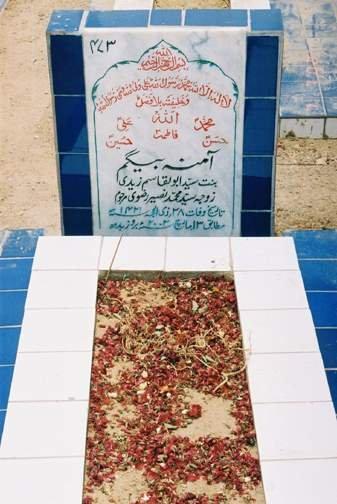 ۴۷۳
بسم اللہ الرحمن الرحیم
لا الہ الا اللہ محمد رسول اللہ علی ولی اللہ وصی رسول اللہ
وخلیفتہ بلا فصل
اللہ
محمد علی
فاطمہ
حسن حسین
آمنہ بیگم
بنت سید ابوالقاسم زیدی
زوجہ سید محمد نصیر رضوی مرحوم
تاریخ وفات ۲۸ ذی الحجہ
مطابق ۱۳ مارچ ۲۰۰۲ء بروز بدھ